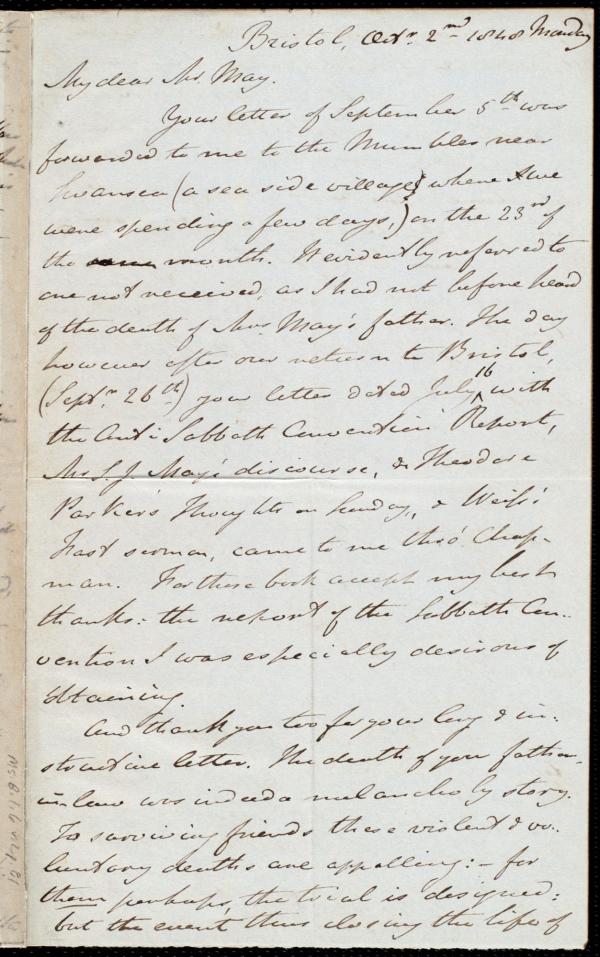 Bristol, Octr. 2nd 1848 Monday
My dear Mr. May.
Your letter of September 5th was
forwarded to me to the Mumbles near
Swansea (a sea side village) where we
were spending a few days,) on the 23rd of
the month. It evidently referred to
one not received, as I had not before heard
of the death of Mrs. May's father. The day
however after our return to Bristol,
(Septr. 26th) your letter dated July 16 with
the Anti Sabbath Convention Report,
Mr S. J. May's discourse, & Theodore
Parker's Thoughts on Sunday, & Weiss's
Fast sermon, came to me thro' Chap-
man. For these book accept my best
thanks: the report of the Sabbath Con-
vention I was especially desirous of
obtaining.
And thank you too for your long & in-
structive letter. The death of your father-
in-law was indeed a melancholy story.
To surviving friends these violent & vo-
luntary deaths are appalling: - for
them perhaps, the trial is designed:
but the event thus closing the life of
Ms. B.1.6 v.2 p.81